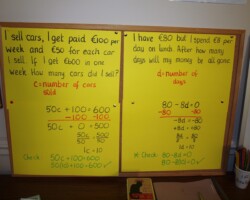 I sell cars, I get paid €100 per
week and €50 for each car
I sell. If I get €600 in one
week. How many cars did I sell?
c=number of cars
sold
50c + 100 = 600
-100 -100
50c + 0 = 500
50c = 500
50 50
1c = 10
Check
50c + 100 = 600
50(10) + 100 = 600 ✓
I have €80 but I spend €8 per
day on lunch. After how many
days will my money be all gone
d=number of
days
80 - 8d = 0
-80 -80
-8d = -80
-8 -8
d = 10
Check
80 - 8d = 0
80 - 80 = 0 ✓